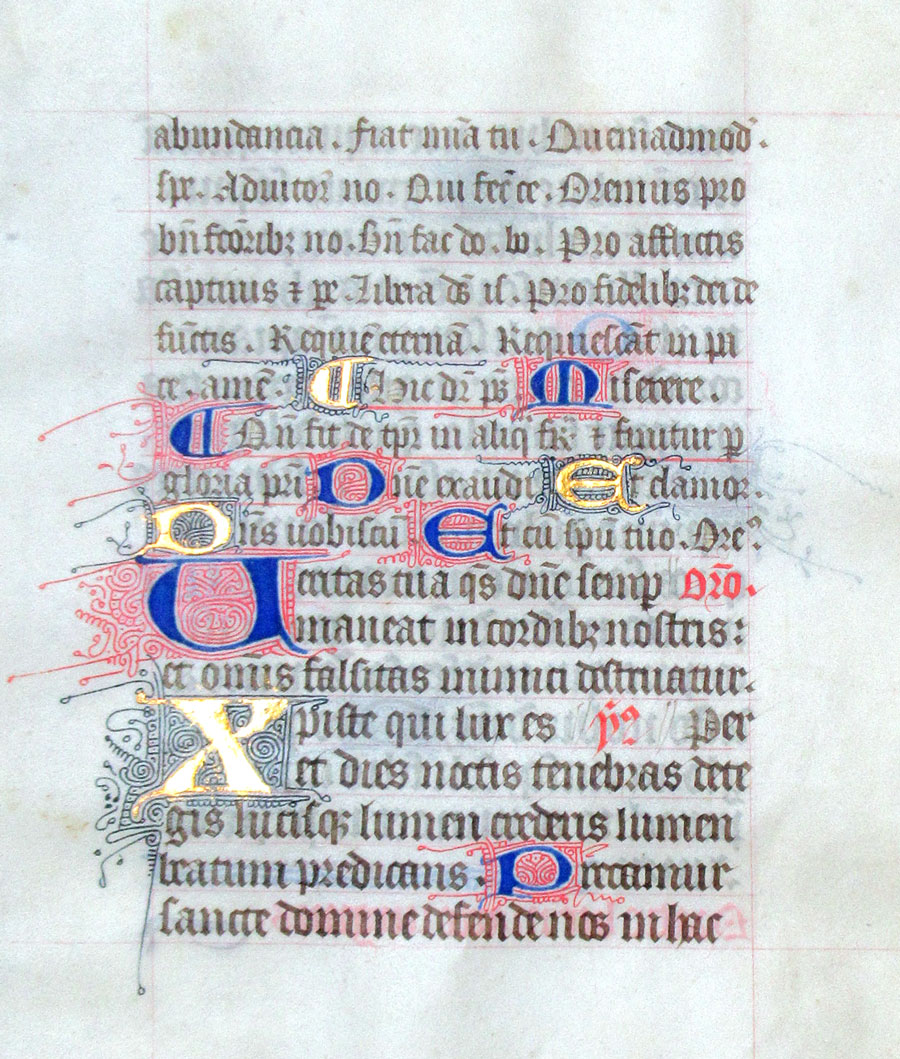 abundancia . fiat mīa tu . Quemadmod'.
spe . Adiutor no . Qui fec̄ ce . Oremus pro
bn̄fc̄oribꝫ no . Dn̄ fac do . w . Pro afflictis
captiuis ⁊ pe . Libera ds̄ is . Pro fidelibꝫ dei de
fūctis . Requiē eternā . Requiescāt in pa
ce . amē . Hic dr̄ ps̄ Miserere .
Et n̄ fit de tp̄r in aliq̄ fr̄ ⁊ finitur ꝑ
gloria pr̄i Dn̄e exaudi Et clamor .
Dn̄s uobiscū Et cū sp̄u tuo . Ore?
Ueritas tua q̄s dn̄e semꝑ Or̄o.
maneat in cordibꝫ nostris :
et om̄is falsitas inimici destruatur .
Xpiste qui lux es yp̄9 Per
et dies noctis tenebras dete
gis lucisqꝫ lumen crederis lumen
beatum predicans . Precamur
sancte domine defende nos in hac